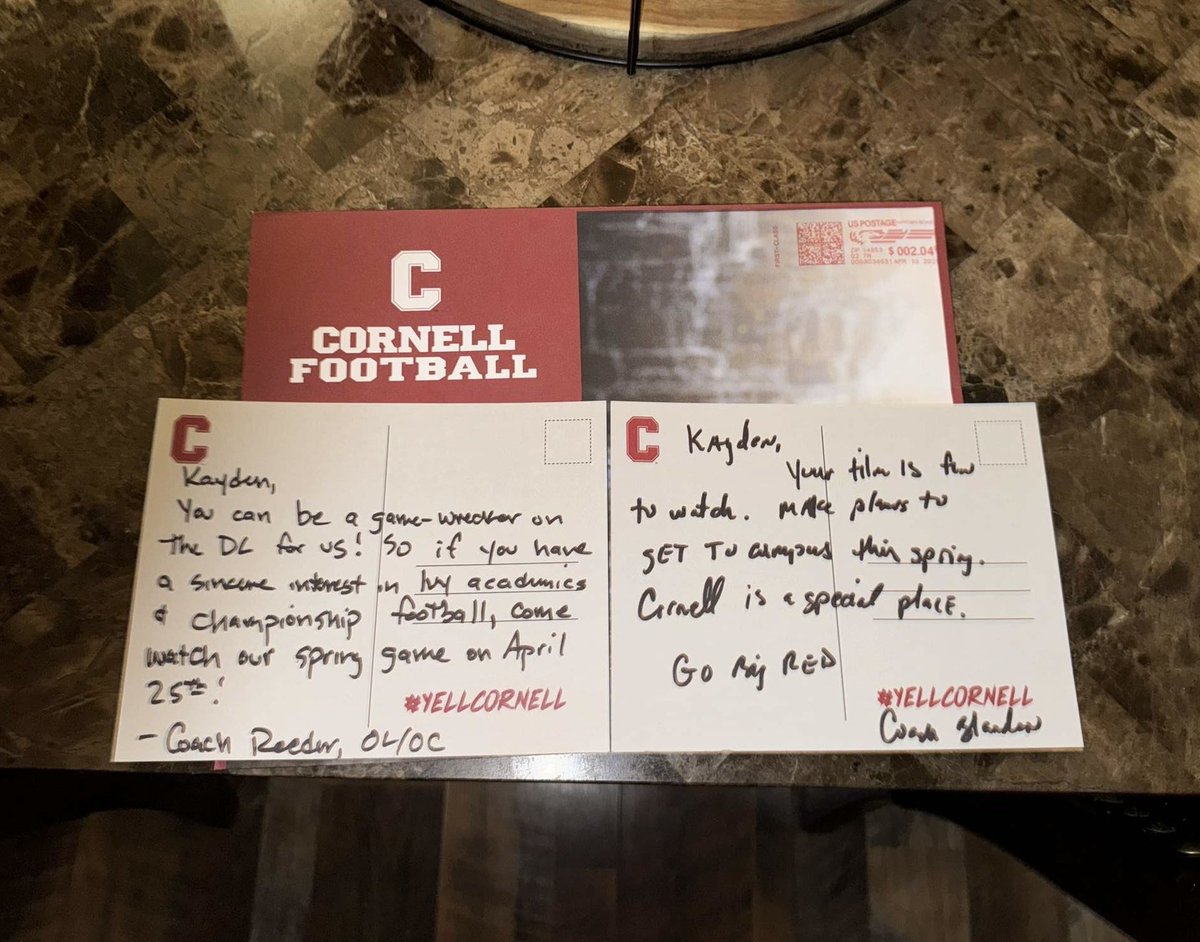 C
CORNELL
FOOTBALL
FIRST-CLASS
US POSTAGE
$ 002.04
C
Kayden,
You can be a game-wrecker on
the DL for us! So if you have
a sincere interest in Ivy academics
& championship football, come
watch our spring game on April
25th!
#YELLCORNELL
- Coach Reeder, OL/OC
C
Kayden,
Your film is fun
to watch. Make plans to
GET TO campus this spring.
Cornell is a special place.
GO Big RED
#YELLCORNELL
Coach